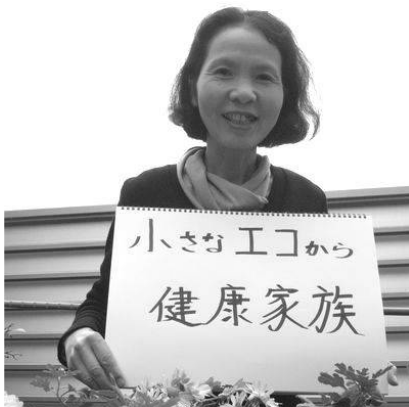 小さなエコから
健康家族